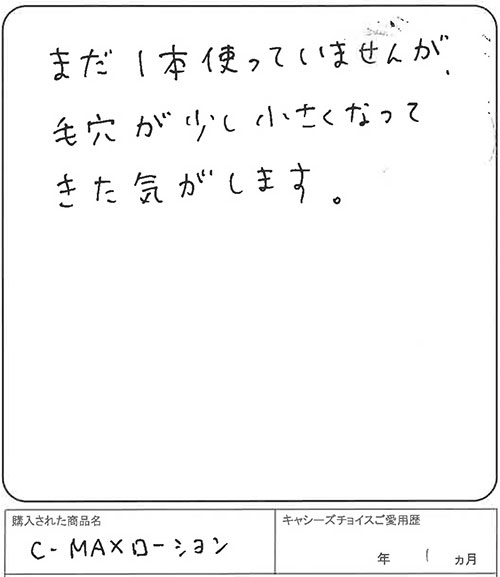 まだ1本使っていませんが、
毛穴が少し小さくなって
きた気がします。
購入された商品名
C-MAXローション
キャシーズチョイスご愛用歴
年 1 ヵ月